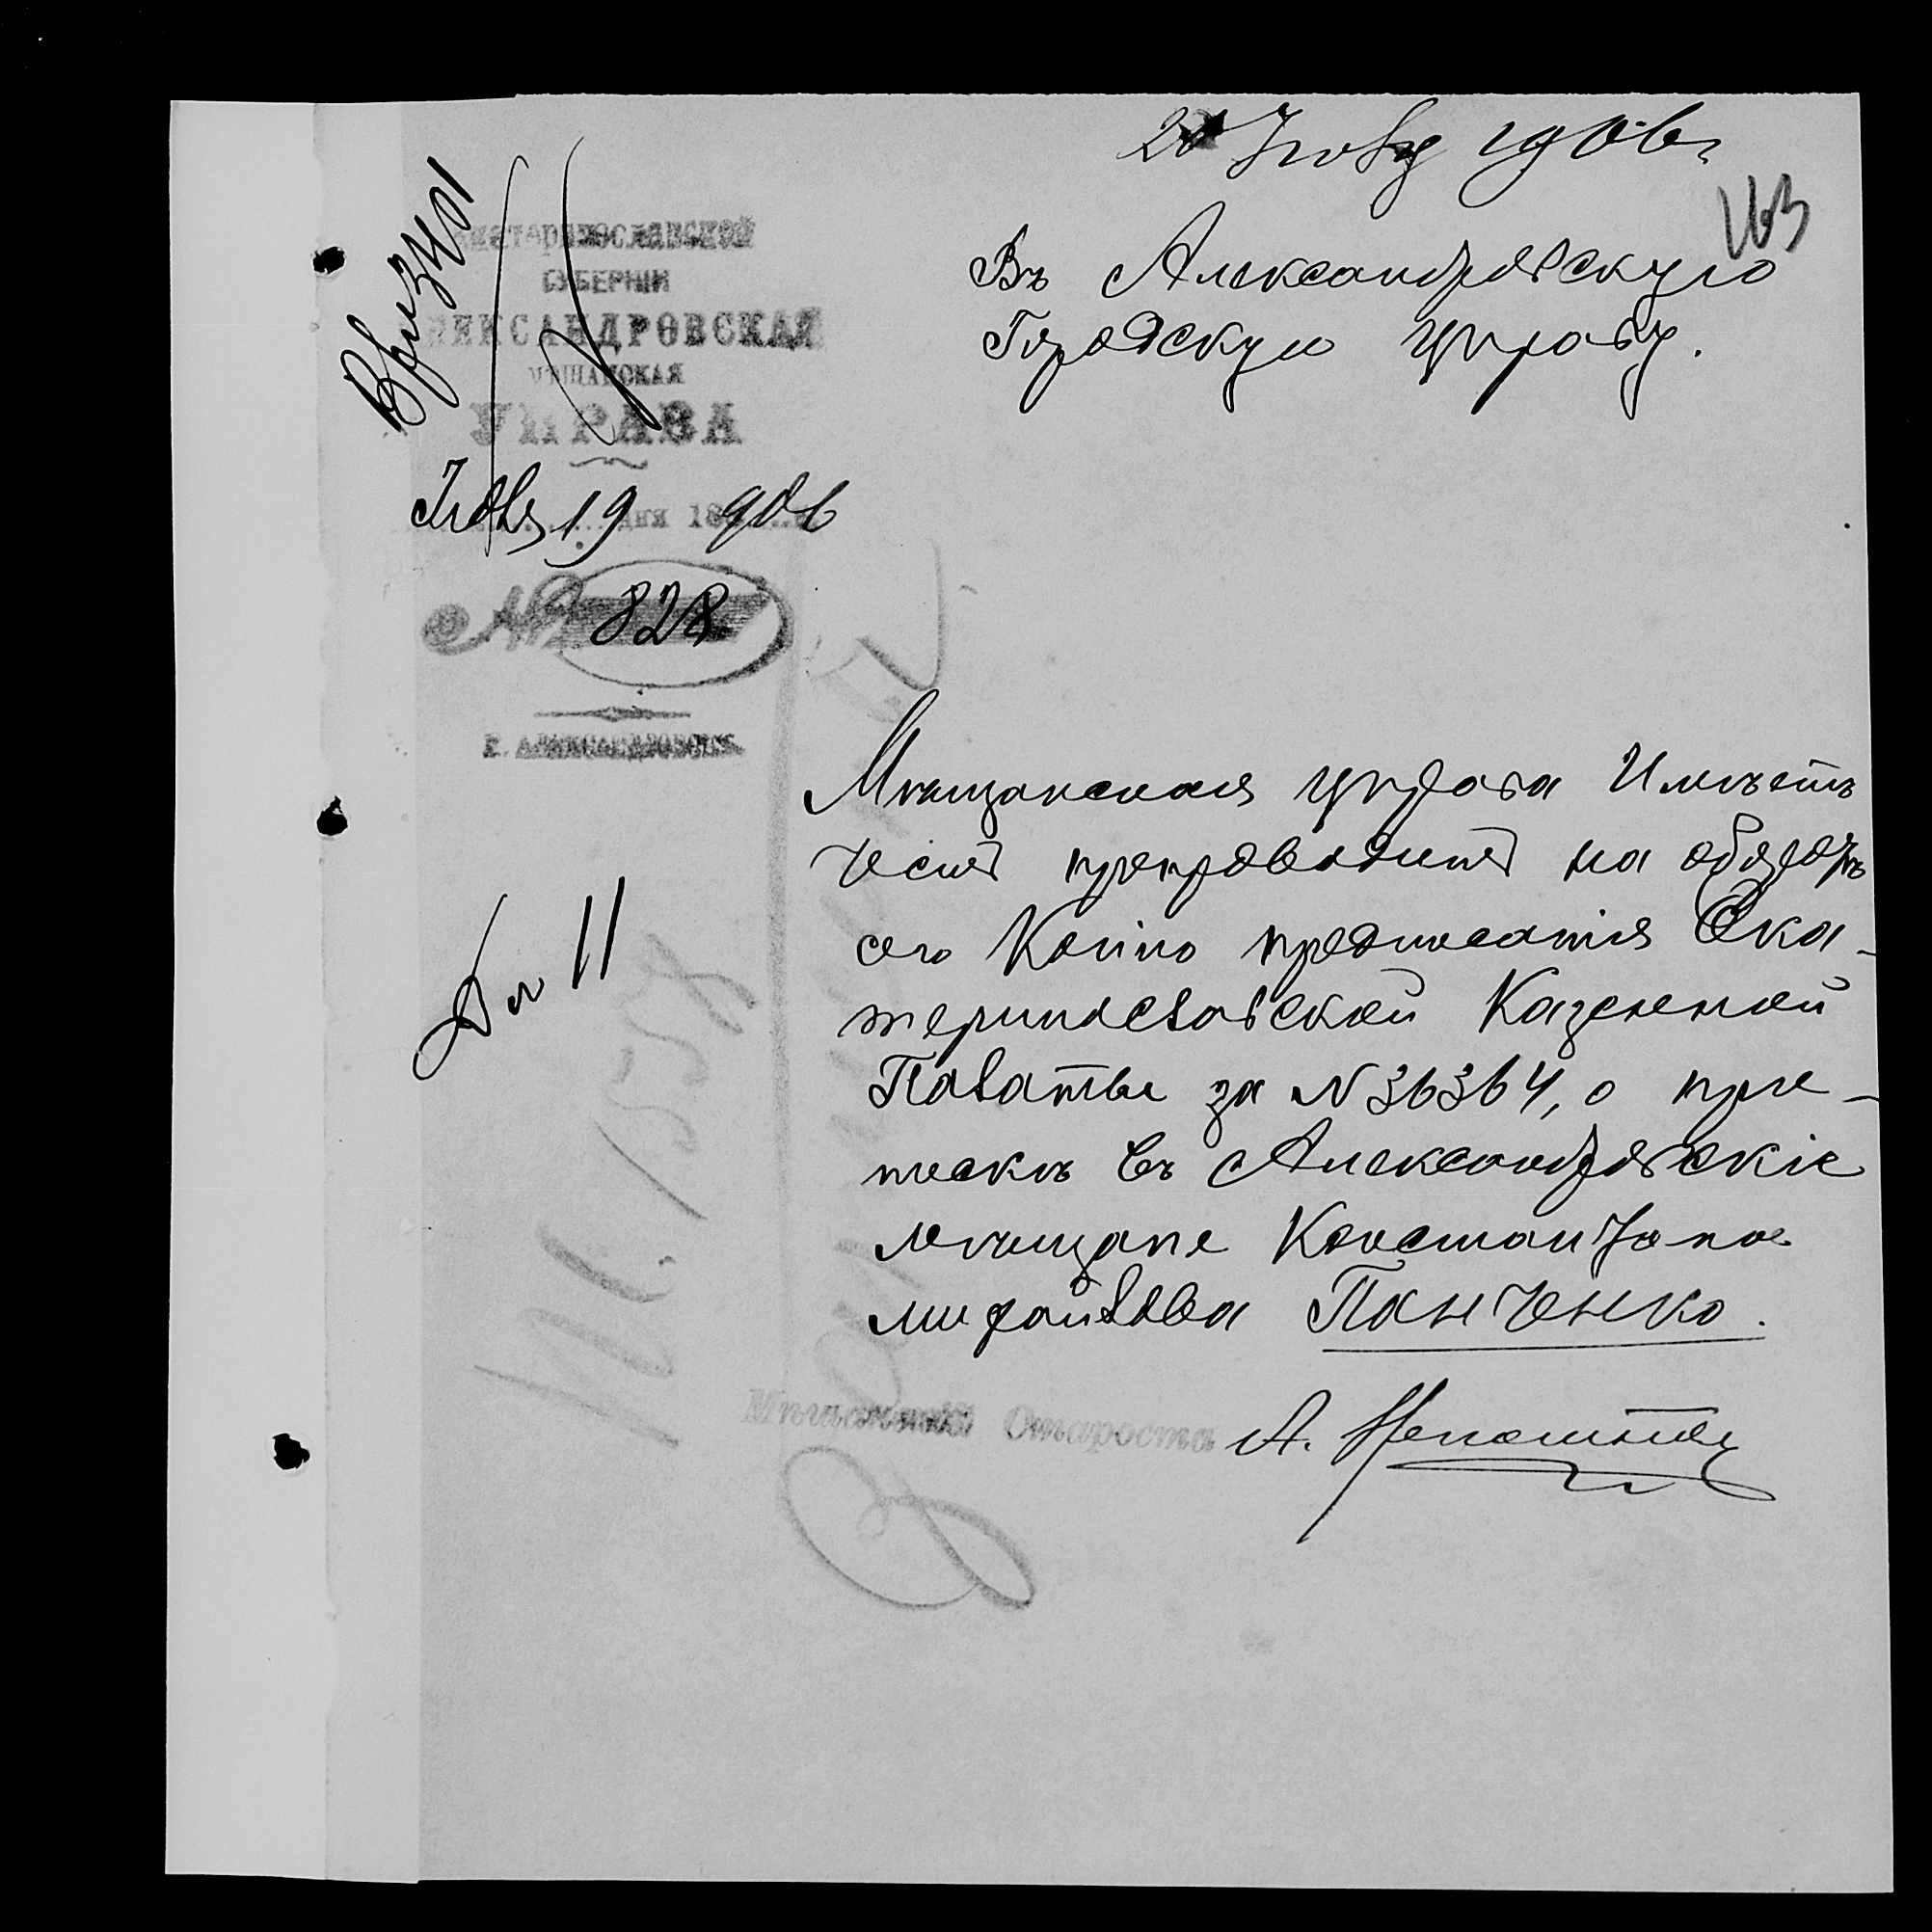 20 Іюля 1906 г.
163
Въ Александровскую
Городскую Управу.
Екатеринославской
ГУБЕРНІИ
АЛЕКСАНДРОВСКАЯ
МѢЩАНСКАЯ
УПРАВА
Іюля 19 дня 1906
№ 828
Г. АЛЕКСАНДРОВСКЪ
Мѣщанская управа Имѣетъ
честь препроводить на
сего Копію предписанія Ека-
теринославской Казенной
Палаты за № 36364, о при-
пискѣ въ Александровскіе
мѣщане Константина
михайлова Панченко.
Мѣщанскій Староста А.
11